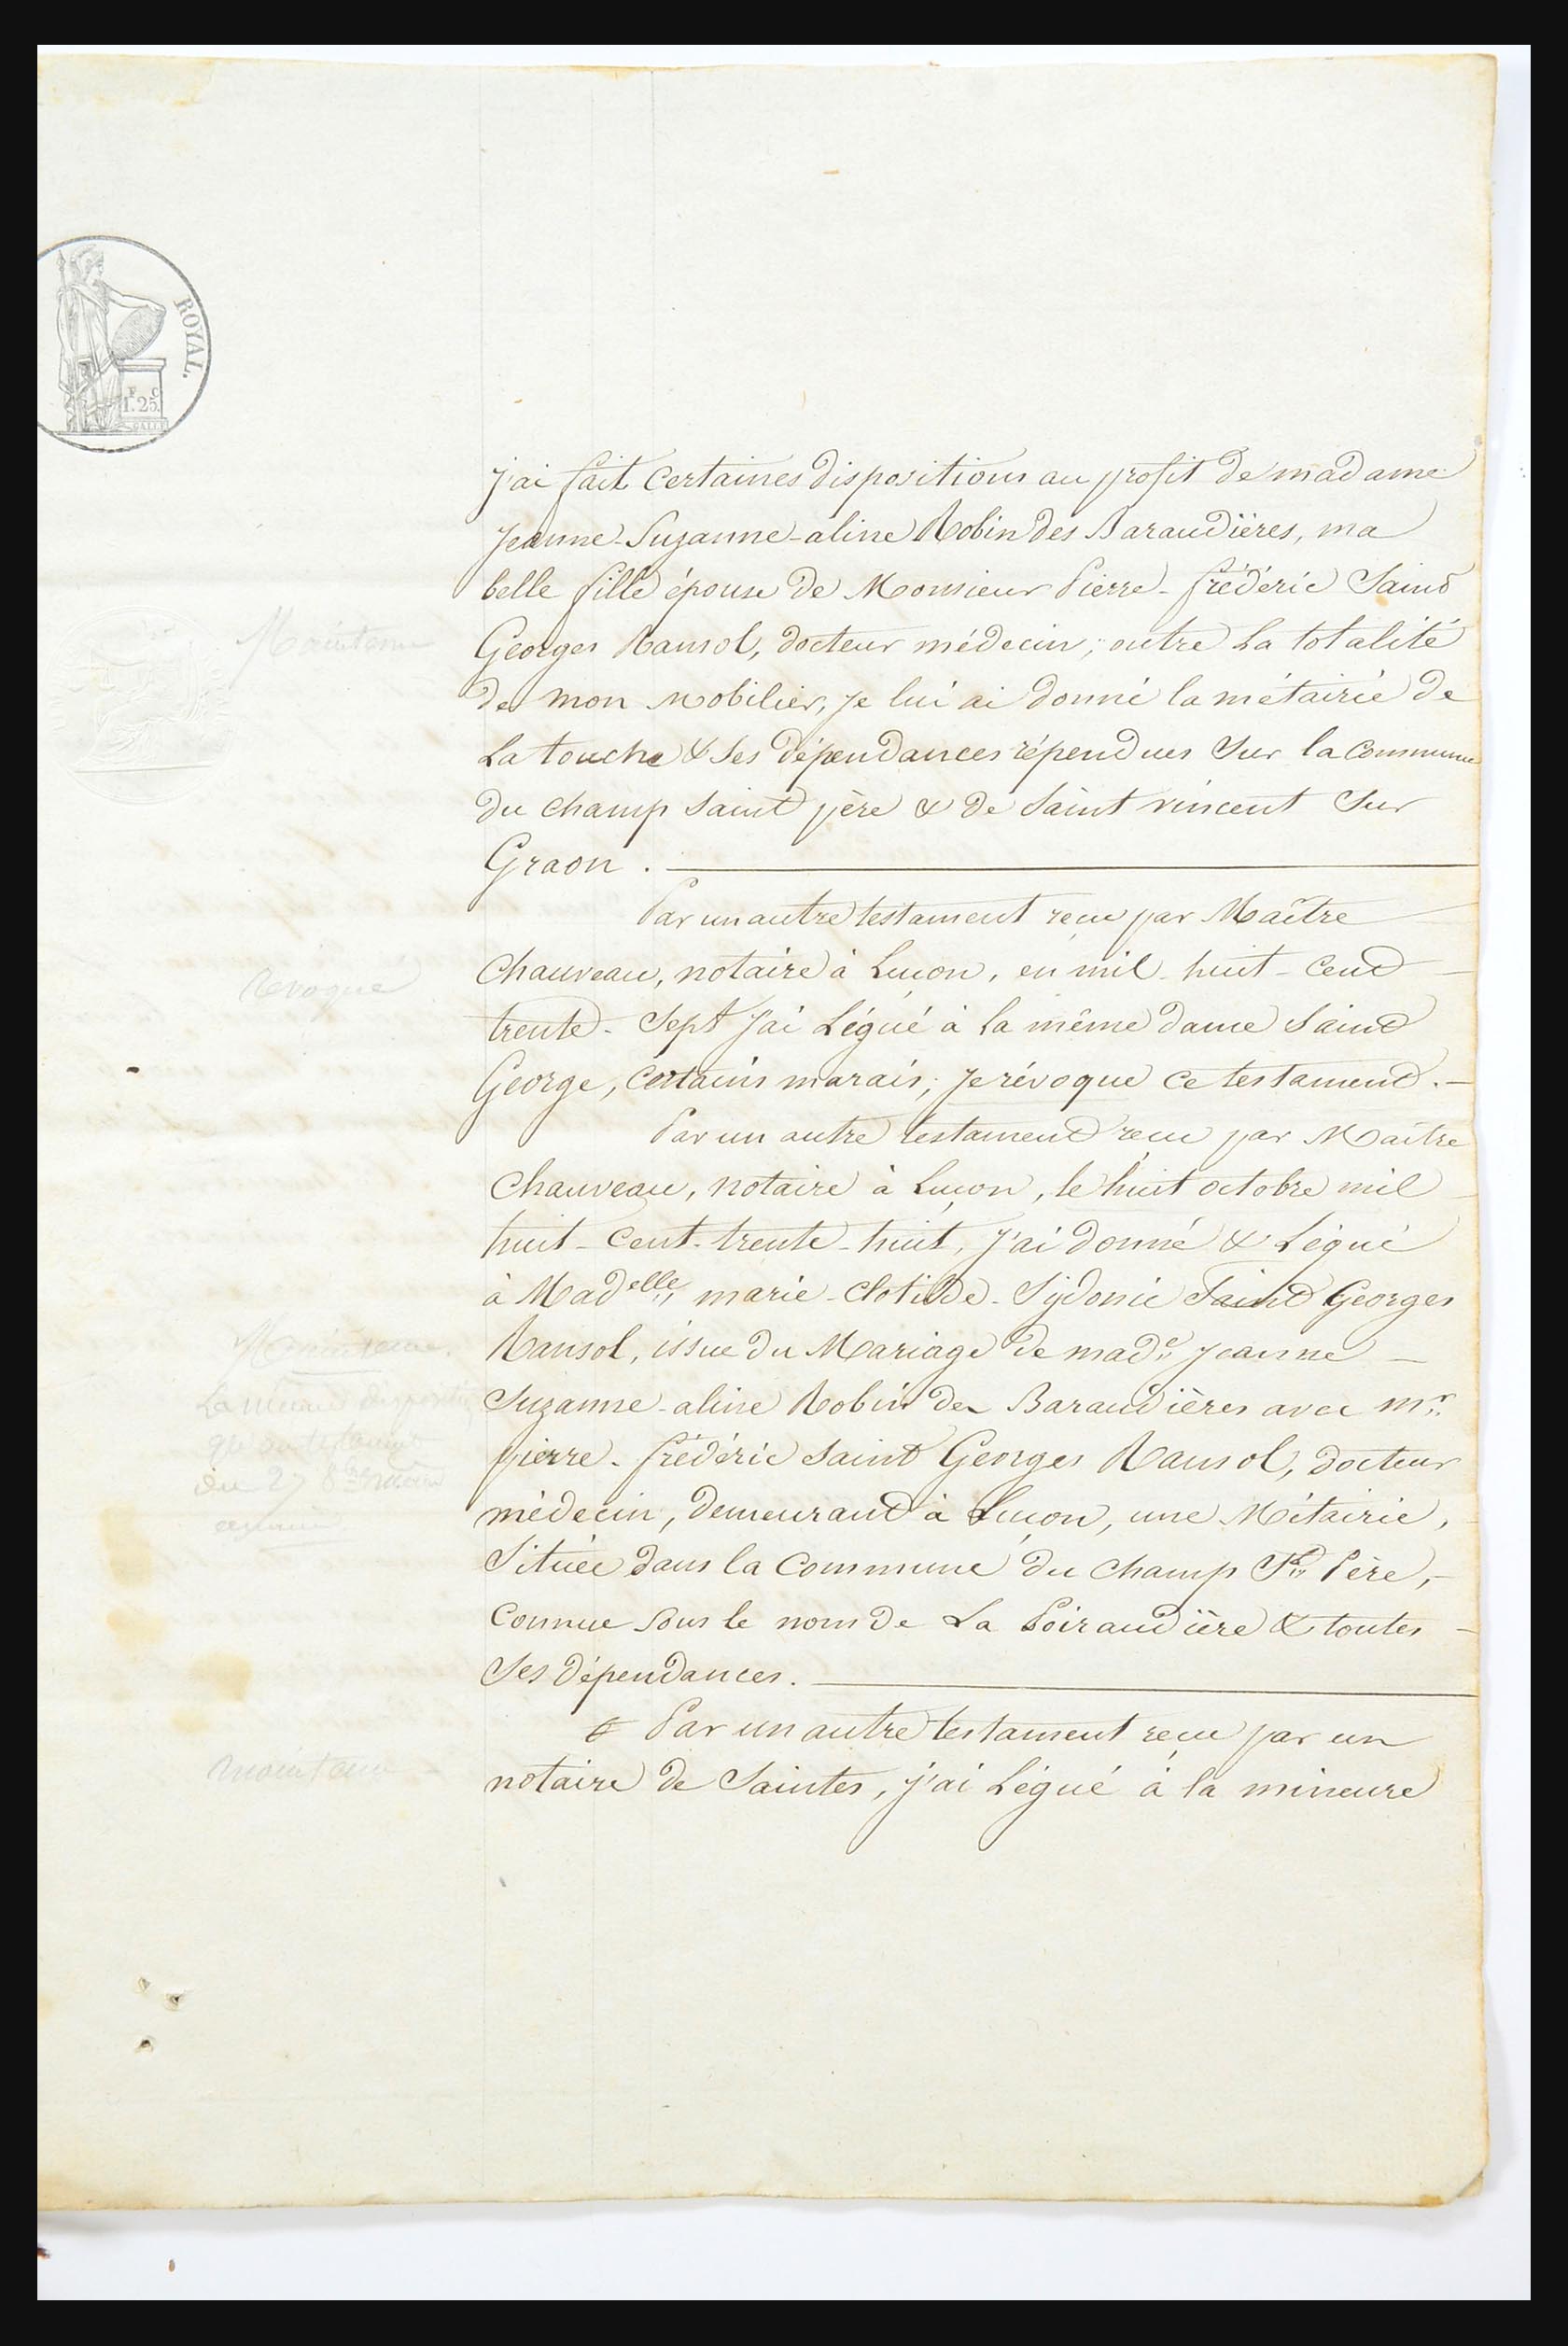 ROYAL.
F C
1.25.
j'ai fait certaines dispositions au profit de madame
Jeanne-Suzanne-aline Robin des Baraudières, ma
belle fille épouse de Monsieur Pierre-frédéric Saint
Maintenu
Georges Ransol, docteur médecin; outre la totalité
de mon mobilier, je lui ai donné la métairie de
La touche & ses dépendances répendues sur la commune
du champ saint père & de saint vincent sur
Graon.
Par un autre testament reçu par Maître
Chauveau, notaire à Luçon, en mil-huit-cent
révoqué
trente-sept j'ai légué à la même dame saint
George, certains marais; je révoque ce testament.
Par un autre testament reçu par Maître
Chauveau, notaire à Luçon, le huit octobre mil
huit-cent-trente-huit, j'ai donné & légué
à Madelle marie-clotilde-Sydonie Saint Georges
Maintenu
Ransol, issue du Mariage de made Jeanne
La même
Suzanne-aline Robin des Baraudières avec mr
pierre-frédéric saint Georges Ransol, docteur
du 27 8bre
médecin, demeurant à Luçon, une Métairie,
Située dans la commune du champ St Père,
connue sous le nom de La Poiraudière & toutes
ses dépendances.
Par un autre testament reçu par un
maintenu
notaire de Saintes, j'ai légué à la mineure